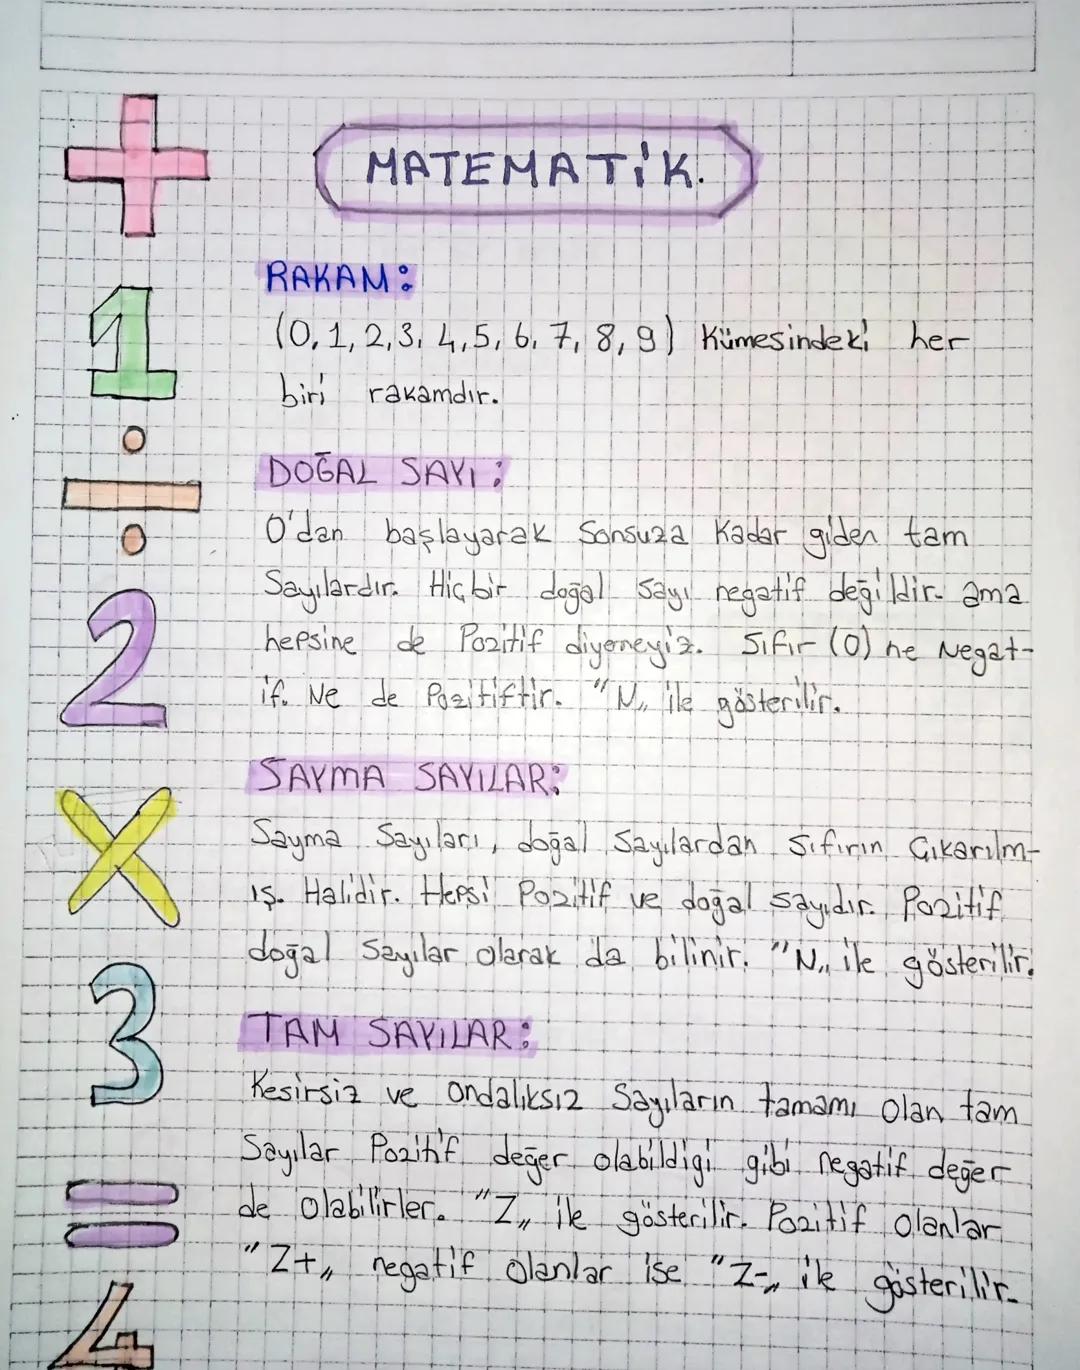 MATEMATİK.
RAKAM:
(0,1,2,3,4,5,6,7,8,9) Kümesindeki her
biri rakamdır.
DOĞAL SAYI:
0'dan başlayarak Sonsuza Kadar giden tam
Sayılardır. Hiçbir doğal sayı negatif değildir. ama
hepsine de Pozitif diyemeyiz. Sıfır (0) ne Negat-
if. Ne de Pozitiftir. "N„ ile gösterilir.
SAYMA SAYILAR:
Sayma Sayıları, doğal Sayılardan Sıfırın Çıkarılm-
ış. Halidir. Hepsi Pozitif ve doğal sayıdır. Pozitif
doğal Sayılar olarak da bilinir. "N„ ile gösterilir.
TAM SAYILAR:
Kesirsiz ve ondalıksız Sayıların tamamı olan tam
Sayılar Pozitif değer olabildigi gibi negatif değer
de olabilirler. "Z„ ile gösterilir. Pozitif olanlar
"Z+„ negatif olanlar ise "Z-„ ile gösterilir.
+
1
÷
2
x
3
=
4